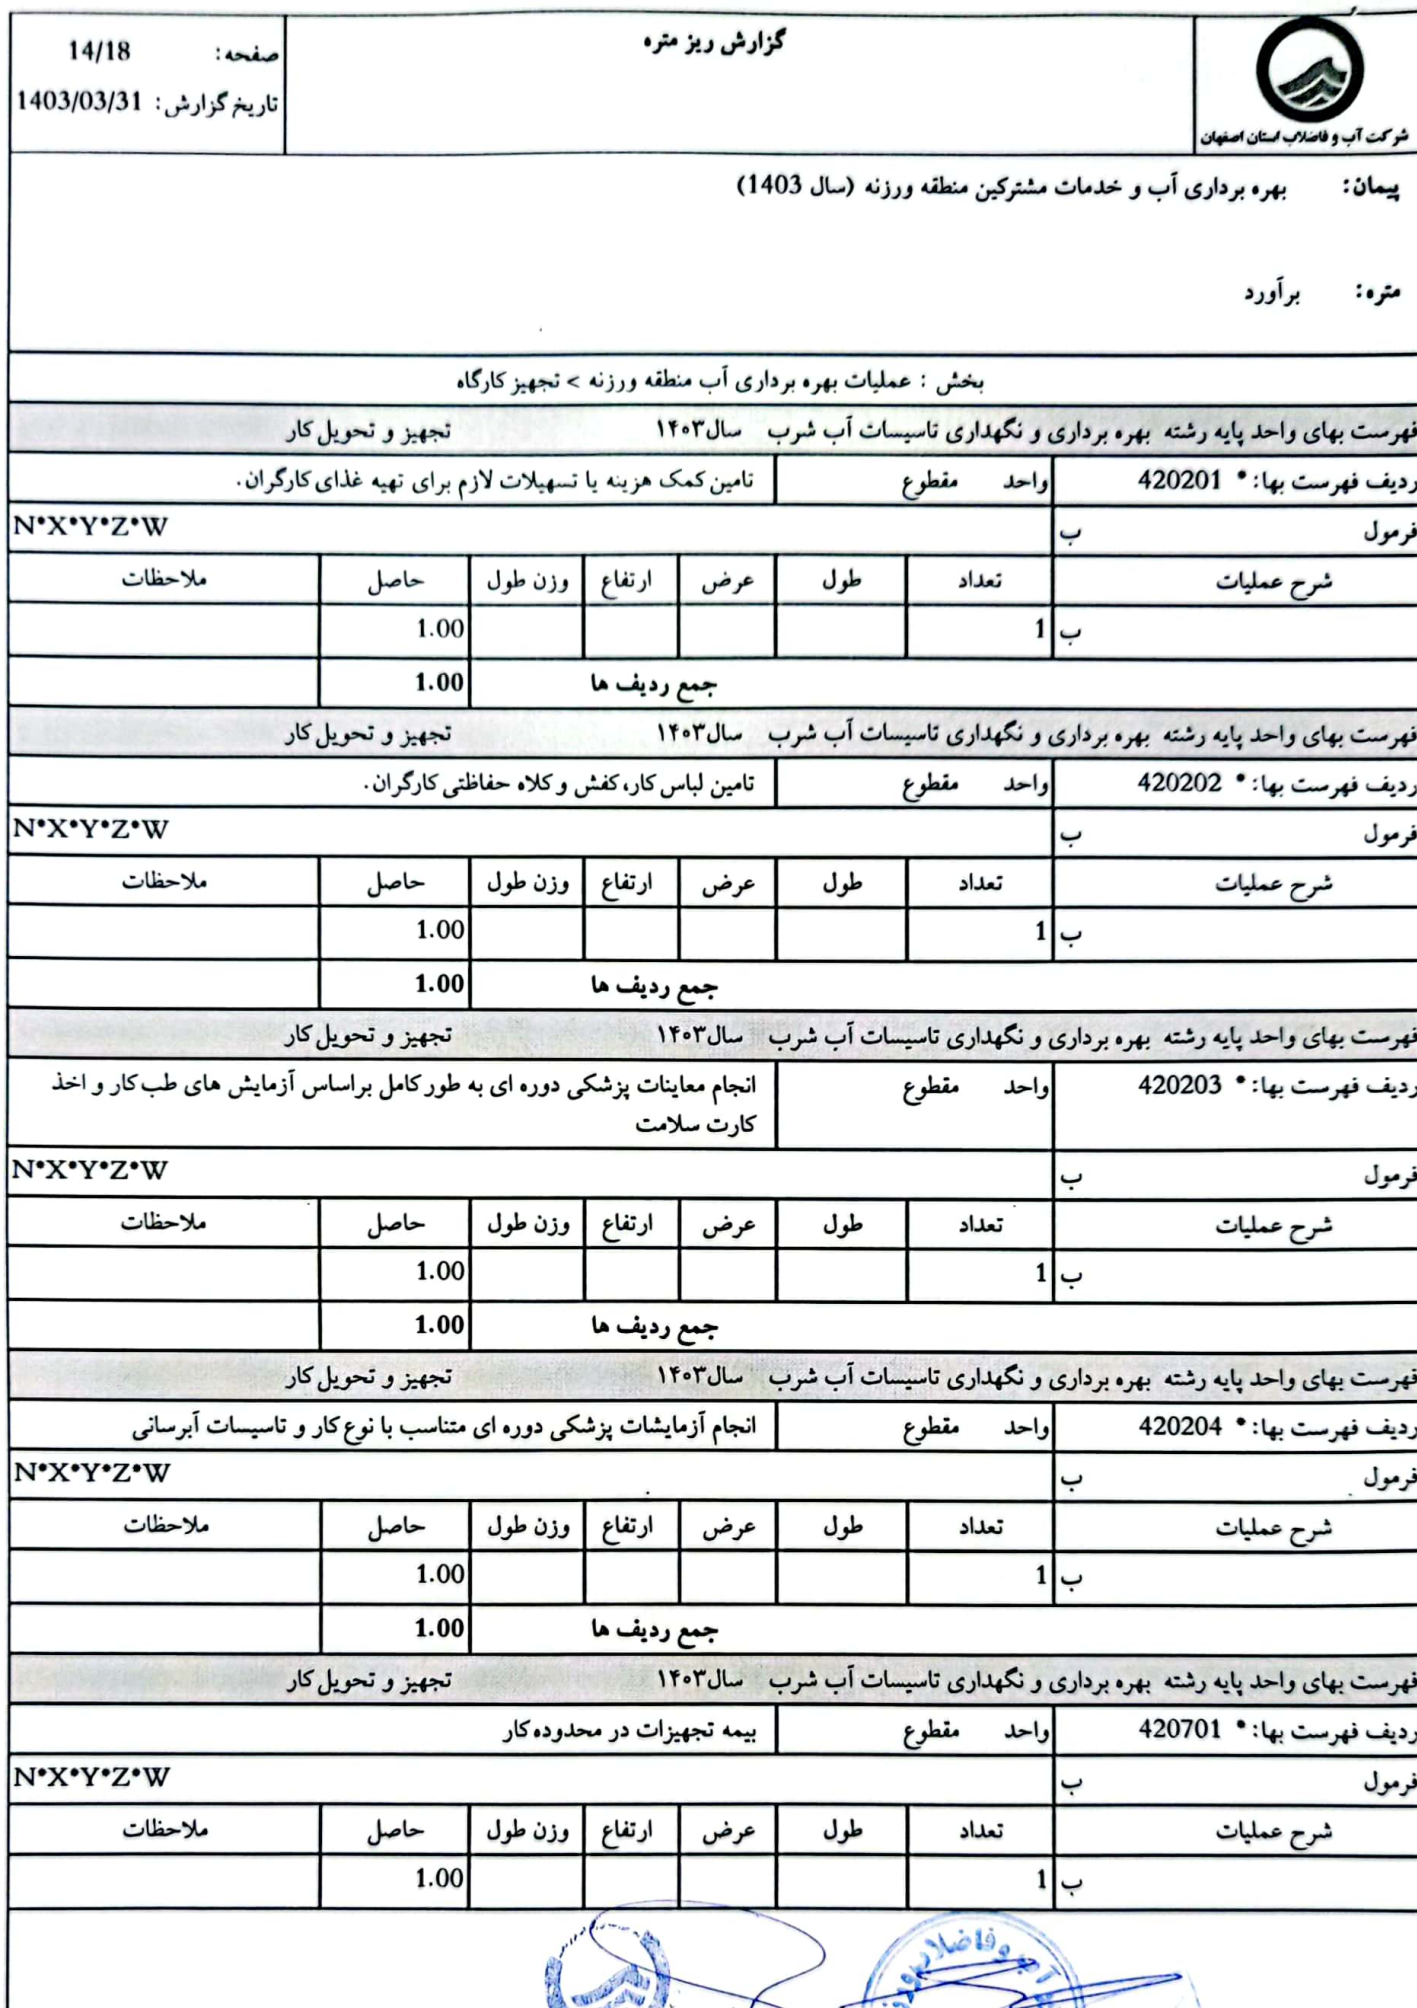 گزارش ریز متره
شرکت آب و فاضلاب استان اصفهان
صفحه: 14/18
تاریخ گزارش: 1403/03/31
پیمان: بهره برداری آب و خدمات مشترکین منطقه ورزنه (سال 1403)
متره: برآورد
بخش : عملیات بهره برداری آب منطقه ورزنه > تجهیز کارگاه
فهرست بهای واحد پایه رشته بهره برداری و نگهداری تاسیسات آب شرب سال۱۴۰۳ تجهیز و تحویل کار
ردیف فهرست بها: * 420201 واحد مقطوع تامین کمک هزینه یا تسهیلات لازم برای تهیه غذای کارگران.
فرمول ب N*X*Y*Z*W
شرح عملیات تعداد طول عرض ارتفاع وزن طول حاصل ملاحظات
ب 1 1.00
جمع ردیف ها 1.00
فهرست بهای واحد پایه رشته بهره برداری و نگهداری تاسیسات آب شرب سال۱۴۰۳ تجهیز و تحویل کار
ردیف فهرست بها: * 420202 واحد مقطوع تامین لباس کار،کفش و کلاه حفاظتی کارگران.
فرمول ب N*X*Y*Z*W
شرح عملیات تعداد طول عرض ارتفاع وزن طول حاصل ملاحظات
ب 1 1.00
جمع ردیف ها 1.00
فهرست بهای واحد پایه رشته بهره برداری و نگهداری تاسیسات آب شرب سال۱۴۰۳ تجهیز و تحویل کار
ردیف فهرست بها: * 420203 واحد مقطوع انجام معاینات پزشکی دوره ای به طور کامل براساس آزمایش های طب کار و اخذ
کارت سلامت
فرمول ب N*X*Y*Z*W
شرح عملیات تعداد طول عرض ارتفاع وزن طول حاصل ملاحظات
ب 1 1.00
جمع ردیف ها 1.00
فهرست بهای واحد پایه رشته بهره برداری و نگهداری تاسیسات آب شرب سال۱۴۰۳ تجهیز و تحویل کار
ردیف فهرست بها: * 420204 واحد مقطوع انجام آزمایشات پزشکی دوره ای متناسب با نوع کار و تاسیسات آبرسانی
فرمول ب N*X*Y*Z*W
شرح عملیات تعداد طول عرض ارتفاع وزن طول حاصل ملاحظات
ب 1 1.00
جمع ردیف ها 1.00
فهرست بهای واحد پایه رشته بهره برداری و نگهداری تاسیسات آب شرب سال۱۴۰۳ تجهیز و تحویل کار
ردیف فهرست بها: * 420701 واحد مقطوع بیمه تجهیزات در محدوده کار
فرمول ب N*X*Y*Z*W
شرح عملیات تعداد طول عرض ارتفاع وزن طول حاصل ملاحظات
ب 1 1.00